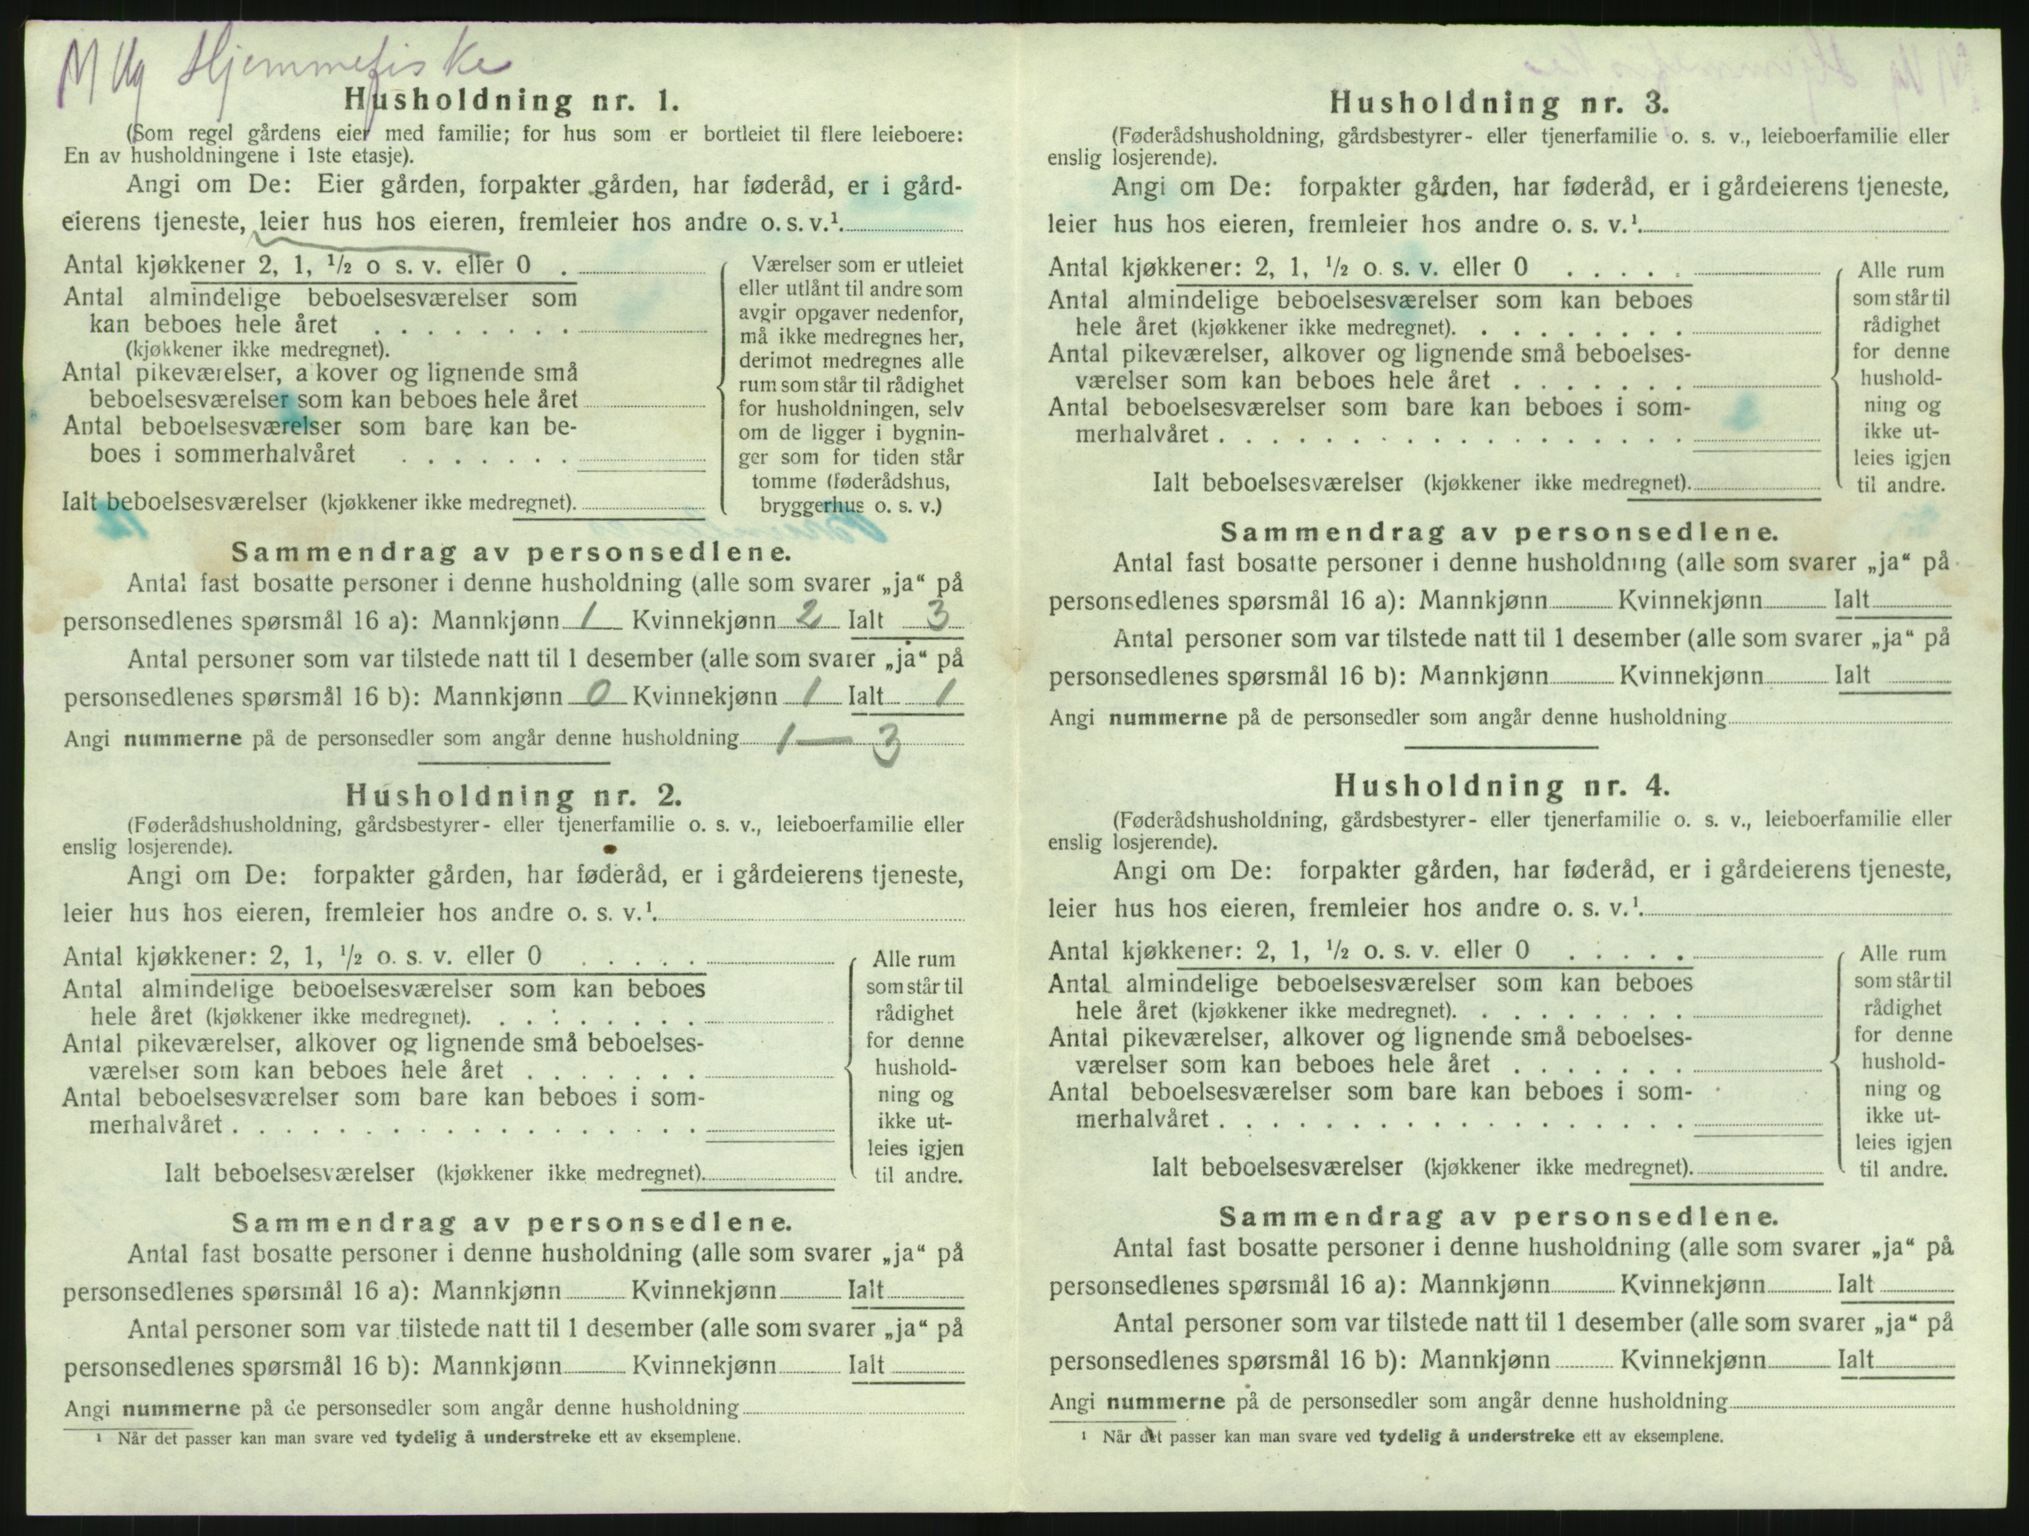 Hjemmefiske
Husholdning nr. 1.
(Som regel gårdens eier med familie; for hus som er bortleiet til flere leieboere:
En av husholdningene i 1ste etasje).
Angi om De: Eier gården, forpakter gården, har føderåd, er i gård-
eierens tjeneste, leier hus hos eieren, fremleier hos andre o. s. v.¹
Antal kjøkkener 2, 1, ½ o s. v. eller 0 .
Antal almindelige beboelsesværelser som
kan beboes hele året . . . . . . . .
(kjøkkener ikke medregnet).
Antal pikeværelser, a kover og lignende små
beboelsesværelser som kan beboes hele året
Antal beboelsesværelser som bare kan be-
boes i sommerhalvåret . . . . . . .
Ialt beboelsesværelser (kjøkkener ikke medregnet).
Værelser som er utleiet
eller utlånt til andre som
avgir opgaver nedenfor,
må ikke medregnes her,
derimot medregnes alle
rum som står til rådighet
for husholdningen, selv
om de ligger i bygnin-
ger som for tiden står
tomme (føderådshus,
bryggerhus o. s. v.)
Sammendrag av personsedlene.
Antal fast bosatte personer i denne husholdning (alle som svarer „ja“ på
personsedlenes spørsmål 16 a): Mannkjønn 1 Kvinnekjønn 2 Ialt 3
Antal personer som var tilstede natt til 1 desember (alle som svarer „ja“ på
personsedlenes spørsmål 16 b): Mannkjønn 0 Kvinnekjønn 1 Ialt 1
Angi nummerne på de personsedler som angår denne husholdning 1 — 3
Husholdning nr. 2.
(Føderådshusholdning, gårdsbestyrer- eller tjenerfamilie o. s. v., leieboerfamilie eller
enslig losjerende).
Angi om De: forpakter gården, har føderåd, er i gårdeierens tjeneste,
leier hus hos eieren, fremleier hos andre o. s. v.¹
Antal kjøkkener: 2, 1, ½ o. s. v. eller 0 . . . . .
Antal almindelige beboelsesværelser som kan beboes
hele året (kjøkkener ikke medregnet). . . . . . . .
Antal pikeværelser, alkover og lignende små beboelses-
værelser som kan beboes hele året . . . . . . .
Antal beboelsesværelser som bare kan beboes i som-
merhalvåret . . . . . . . . . . . . . . . . . .
Ialt beboelsesværelser (kjøkkener ikke medregnet).
Alle rum
som står til
rådighet
for denne
hushold-
ning og
ikke ut-
leies igjen
til andre.
Sammendrag av personsedlene.
Antal fast bosatte personer i denne husholdning (alle som svarer „ja“ på
personsedlenes spørsmål 16 a): Mannkjønn Kvinnekjønn Ialt
Antal personer som var tilstede natt til 1 desember (alle som svarer „ja“ på
personsedlenes spørsmål 16 b): Mannkjønn Kvinnekjønn Ialt
Angi nummerne på de personsedler som angår denne husholdning
¹ Når det passer kan man svare ved tydelig å understreke ett av eksemplene.
Husholdning nr. 3.
(Føderådshusholdning, gårdsbestyrer- eller tjenerfamilie o. s. v., leieboerfamilie eller
enslig losjerende).
Angi om De: forpakter gården, har føderåd, er i gårdeierens tjeneste,
leier hus hos eieren, fremleier hos andre o. s. v.¹
Antal kjøkkener: 2, 1, ½ o. s. v. eller 0 . . . . .
Antal almindelige beboelsesværelser som kan beboes
hele året (kjøkkener ikke medregnet). . . . . . . . .
Antal pikeværelser, alkover og lignende små beboelses-
værelser som kan beboes hele året . . . . . . .
Antal beboelsesværelser som bare kan beboes i som-
merhalvåret . . . . . . . . . . . . . . . . . .
Ialt beboelsesværelser (kjøkkener ikke medregnet).
Alle rum
som står til
rådighet
for denne
hushold-
ning og
ikke ut-
leies igjen
til andre.
Sammendrag av personsedlene.
Antal fast bosatte personer i denne husholdning (alle som svarer „ja“ på
personsedlenes spørsmål 16 a): Mannkjønn Kvinnekjønn Ialt
Antal personer som var tilstede natt til 1 desember (alle som svarer „ja“ på
personsedlenes spørsmål 16 b): Mannkjønn Kvinnekjønn Ialt
Angi nummerne på de personsedler som angår denne husholdning
Husholdning nr. 4.
(Føderådshusholdning, gårdsbestyrer- eller tjenerfamilie o. s. v., leieboerfamilie eller
enslig losjerende).
Angi om De: forpakter gården, har føderåd, er i gårdeierens tjeneste,
leier hus hos eieren, fremleier hos andre o. s. v.¹
Antal kjøkkener: 2, 1, ½ o. s. v. eller 0 . . . . .
Antal almindelige beboelsesværelser som kan beboes
hele året (kjøkkener ikke medregnet). . . . . . . . .
Antal pikeværelser, alkover og lignende små beboelses-
værelser som kan beboes hele året . . . . . . .
Antal beboelsesværelser som bare kan beboes i som-
merhalvåret . . . . . . . . . . . . . . . . . .
Ialt beboelsesværelser (kjøkkener ikke medregnet).
Alle rum
som står til
rådighet
for denne
hushold-
ning og
ikke ut-
leies igjen
til andre.
Sammendrag av personsedlene.
Antal fast bosatte personer i denne husholdning (alle som svarer „ja“ på
personsedlenes spørsmål 16 a): Mannkjønn Kvinnekjønn Ialt
Antal personer som var tilstede natt til 1 desember (alle som svarer „ja“ på
personsedlenes spørsmål 16 b): Mannkjønn Kvinnekjønn Ialt
Angi nummerne på de personsedler som angår denne husholdning
¹ Når det passer kan man svare ved tydelig å understreke ett av eksemplene.